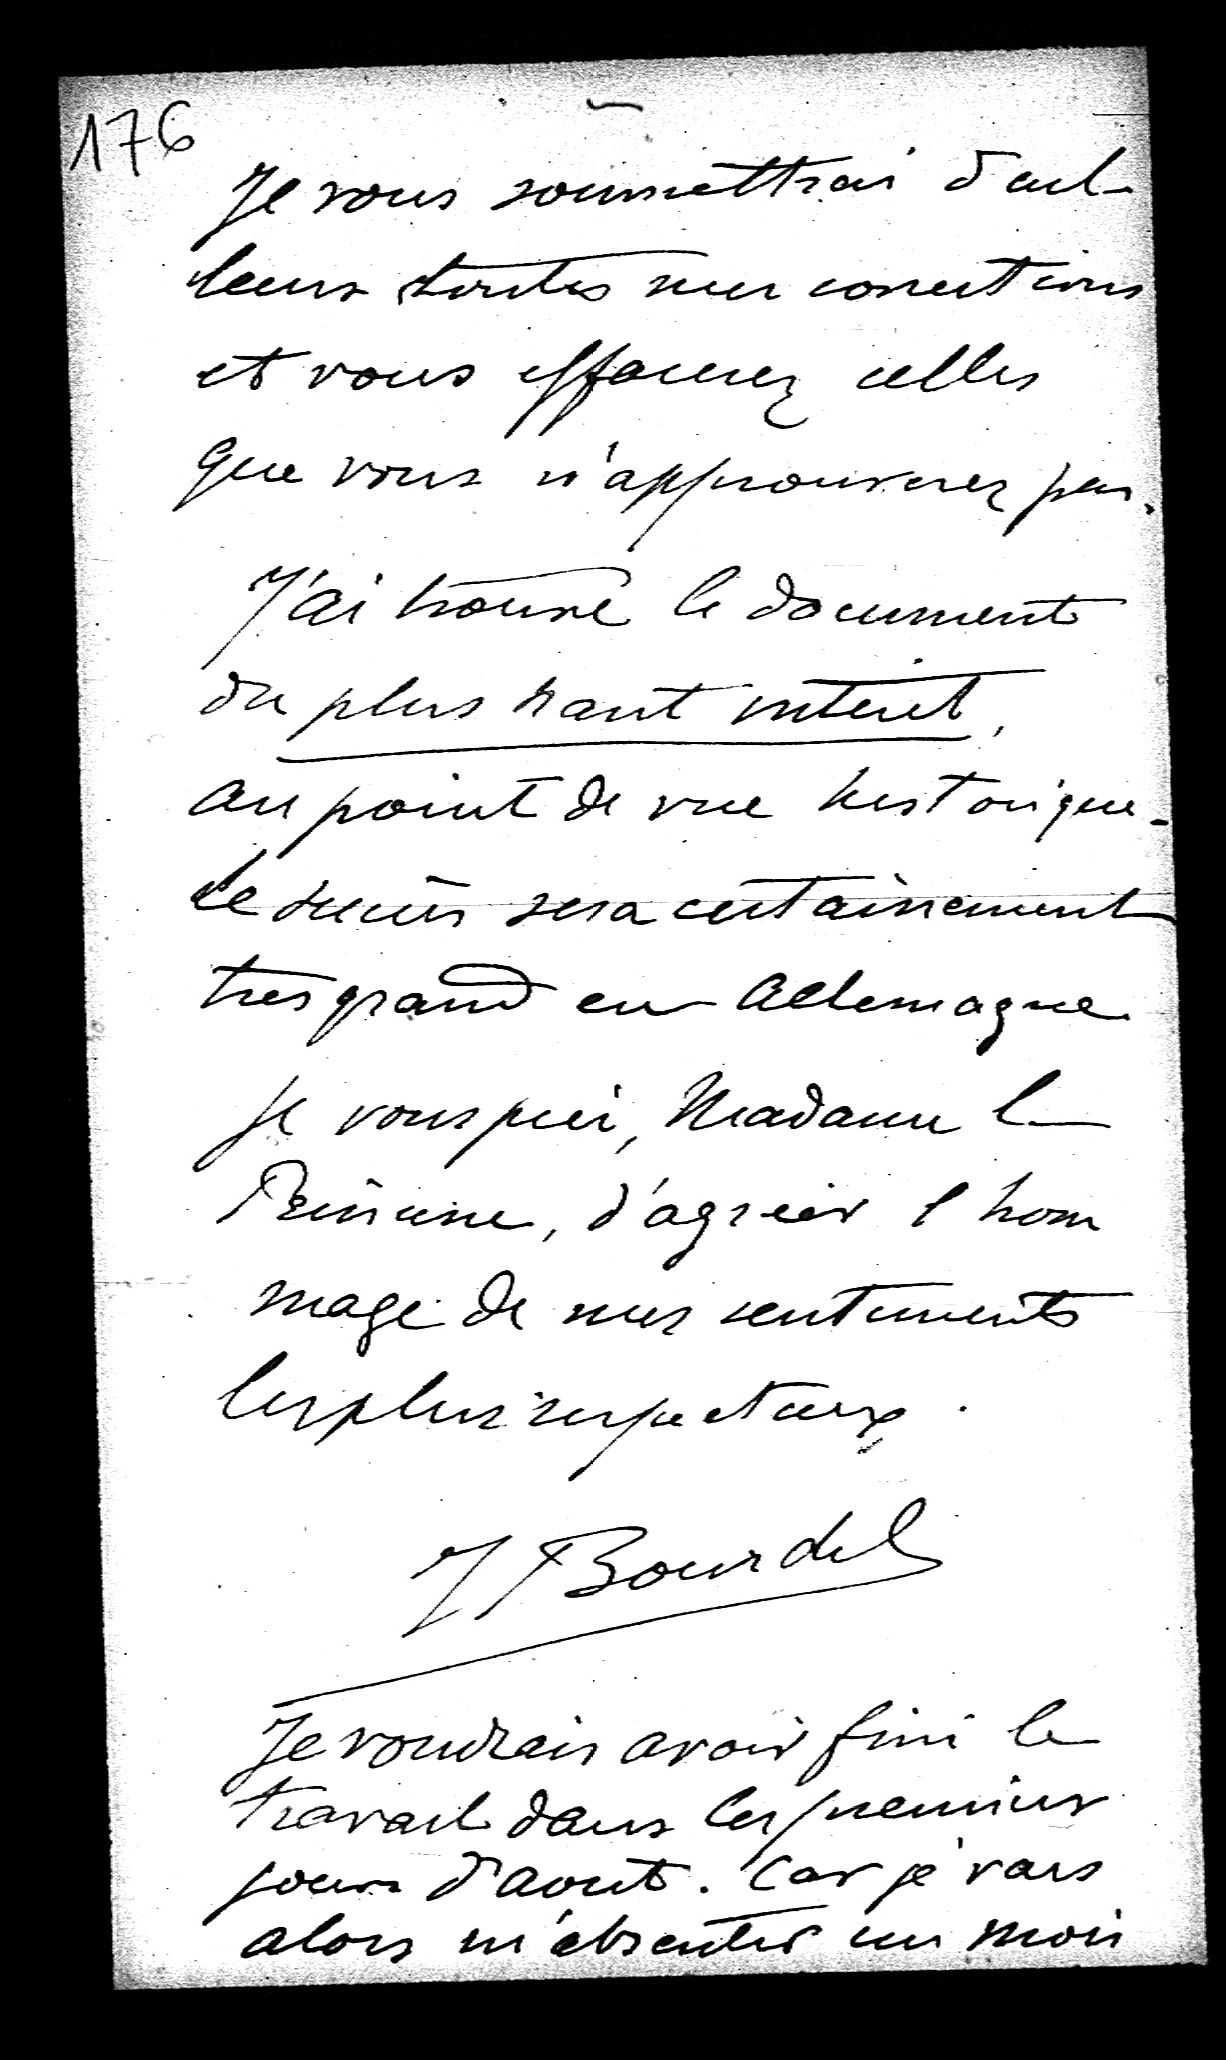 176
Je vous soumettrai d'ail-
leurs toutes mes corrections
et vous effacerez celles
que vous n'approuverez pas.
J'ai trouvé le document
du plus haut intérêt,
au point de vue historique.
Le succès sera certainement
très grand en Allemagne.
Je vous prie, Madame la
Princesse, d'agréer l'hom
mage de mes sentiments
les plus respectueux.
J Bourdel
Je voudrais avoir fini le
travail dans les premiers
jours d'août. Car je vais
alors m'absenter un mois